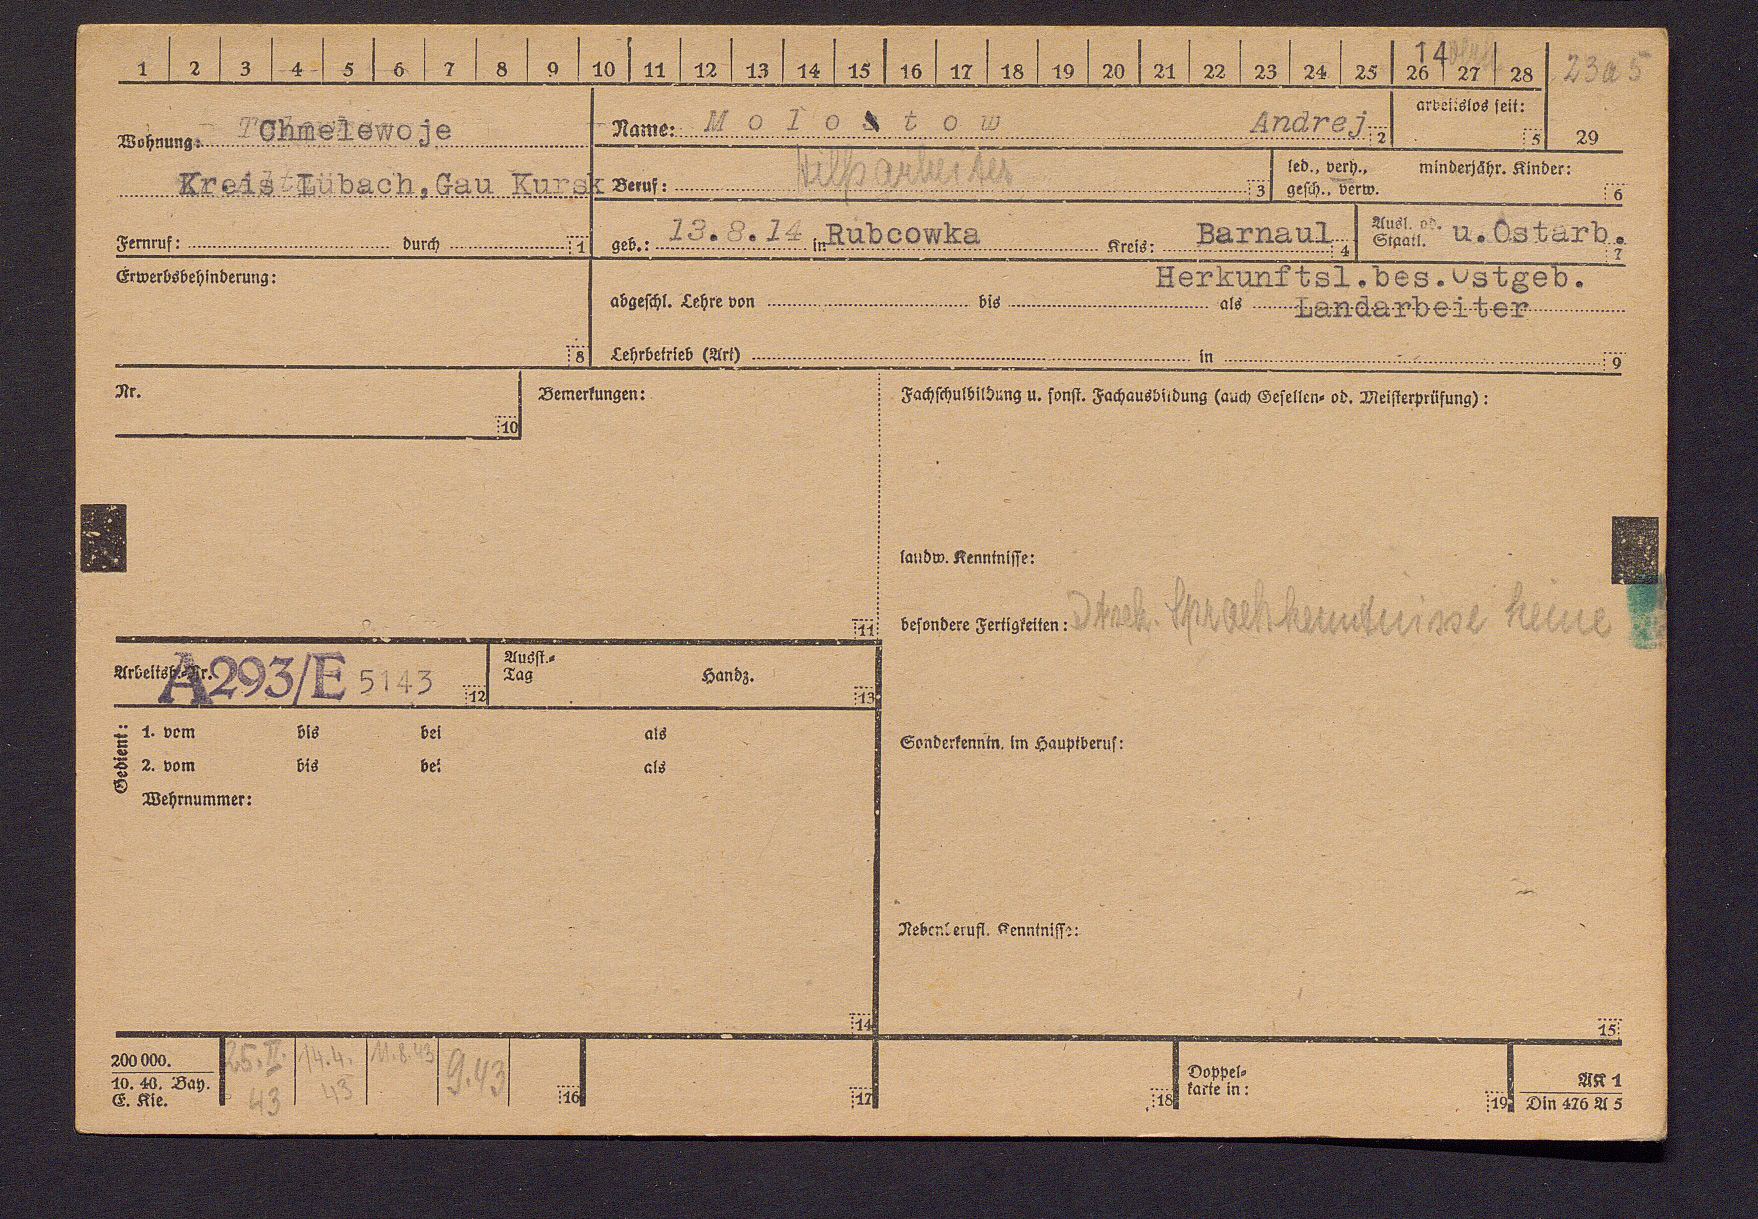 1 2 3 4 5 6 7 8 9 10 11 12 13 14 15 16 17 18 19 20 21 22 23 24 25 26 27 28
14
23a5
Wohnung: Chmelewoje
Kreis Lübach, Gau Kursk
Fernruf: durch 1
Name: Molostow Andrej 2
arbeitslos seit: 5
29
Beruf: Hilfsarbeiter 3
led., verh., minderjähr. Kinder:
gesch., verw. 6
geb.: 13.8.14 in Rubcowka Kreis: Barnaul 4
Ausl. od. Staatl. u.Ostarb. 7
Erwerbsbehinderung: 8
Herkunftsl.bes.Ostgeb.
abgeschl. Lehre von bis als Landarbeiter
Lehrbetrieb (Art) in 9
Nr. 10
Bemerkungen: 11
Fachschulbildung u. sonst. Fachausbildung (auch Gesellen- od. Meisterprüfung):
landw. Kenntnisse:
besondere Fertigkeiten: Dtsch. Sprachkenntnisse keine
Arbeitsb.-Nr. A293/E 5143 12
Ausst.-Tag Handz. 13
Gedient:
1. vom bis bei als
2. vom bis bei als
Wehrnummer:
14
Sonderkenntn. im Hauptberuf:
Nebenberufl. Kenntnisse:
15
200 000.
10. 40. Bay.
E. Kie.
25.II.43
14.4.43
11.8.43
9.43
16
17
18
Doppelkarte in: 19
AK 1
Din 476 A 5